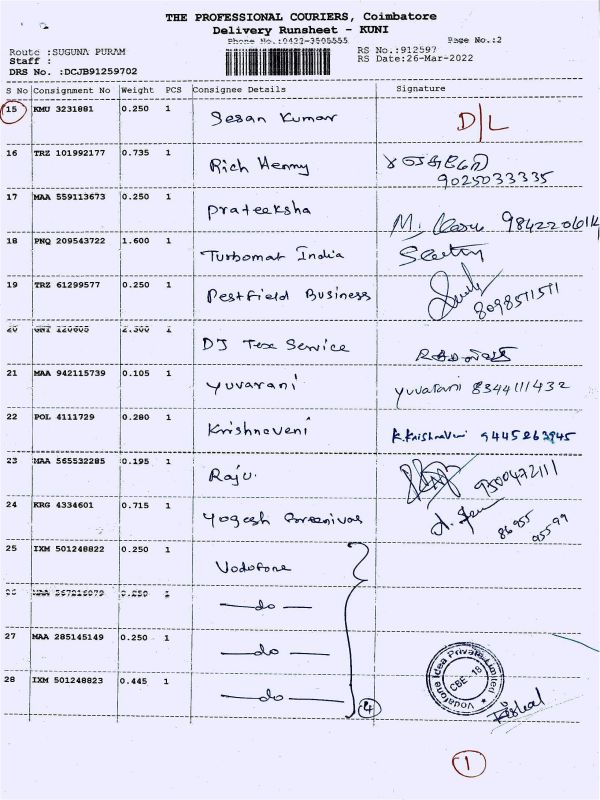 THE PROFESSIONAL COURIERS, Coimbatore
Delivery Runsheet - KUNI
Phone No.:0422-3505555 Page No.:2
Route :SUGUNA PURAM RS No.:912597
Staff : RS Date:26-Mar-2022
DRS No. :DCJB91259702
S No Consignment No Weight PCS Consignee Details Signature
15 KMU 3231881 0.250 1 Sesan Kumar D/L
16 TRZ 101992177 0.735 1 Rich Henny
9025033335
17 MAA 559113673 0.250 1 Prateeksha
M. 9842206114
18 PNQ 209543722 1.600 1 Turbomat India
19 TRZ 61299577 0.250 1 Pestfield Business
8098511511
20 GNT 120605 2.300 1 DJ Tex Service
21 MAA 942115739 0.105 1 Yuvarani Yuvarani 8344111432
22 POL 4111729 0.280 1 Krishnaveni K.Krishnaveni 9445263945
23 MAA 565532285 0.195 1 Raju. 9300472111
24 KRG 4334601 0.715 1 Yogesh Sreenivas
86955
95599
25 IXM 501248822 0.250 1 Vodofone
26 MAA 567216079 0.250 1 —do—
27 MAA 285145149 0.250 1 —do—
28 IXM 501248823 0.445 1 —do— 4
Vodafone Idea Private Limited
CBE-18
1